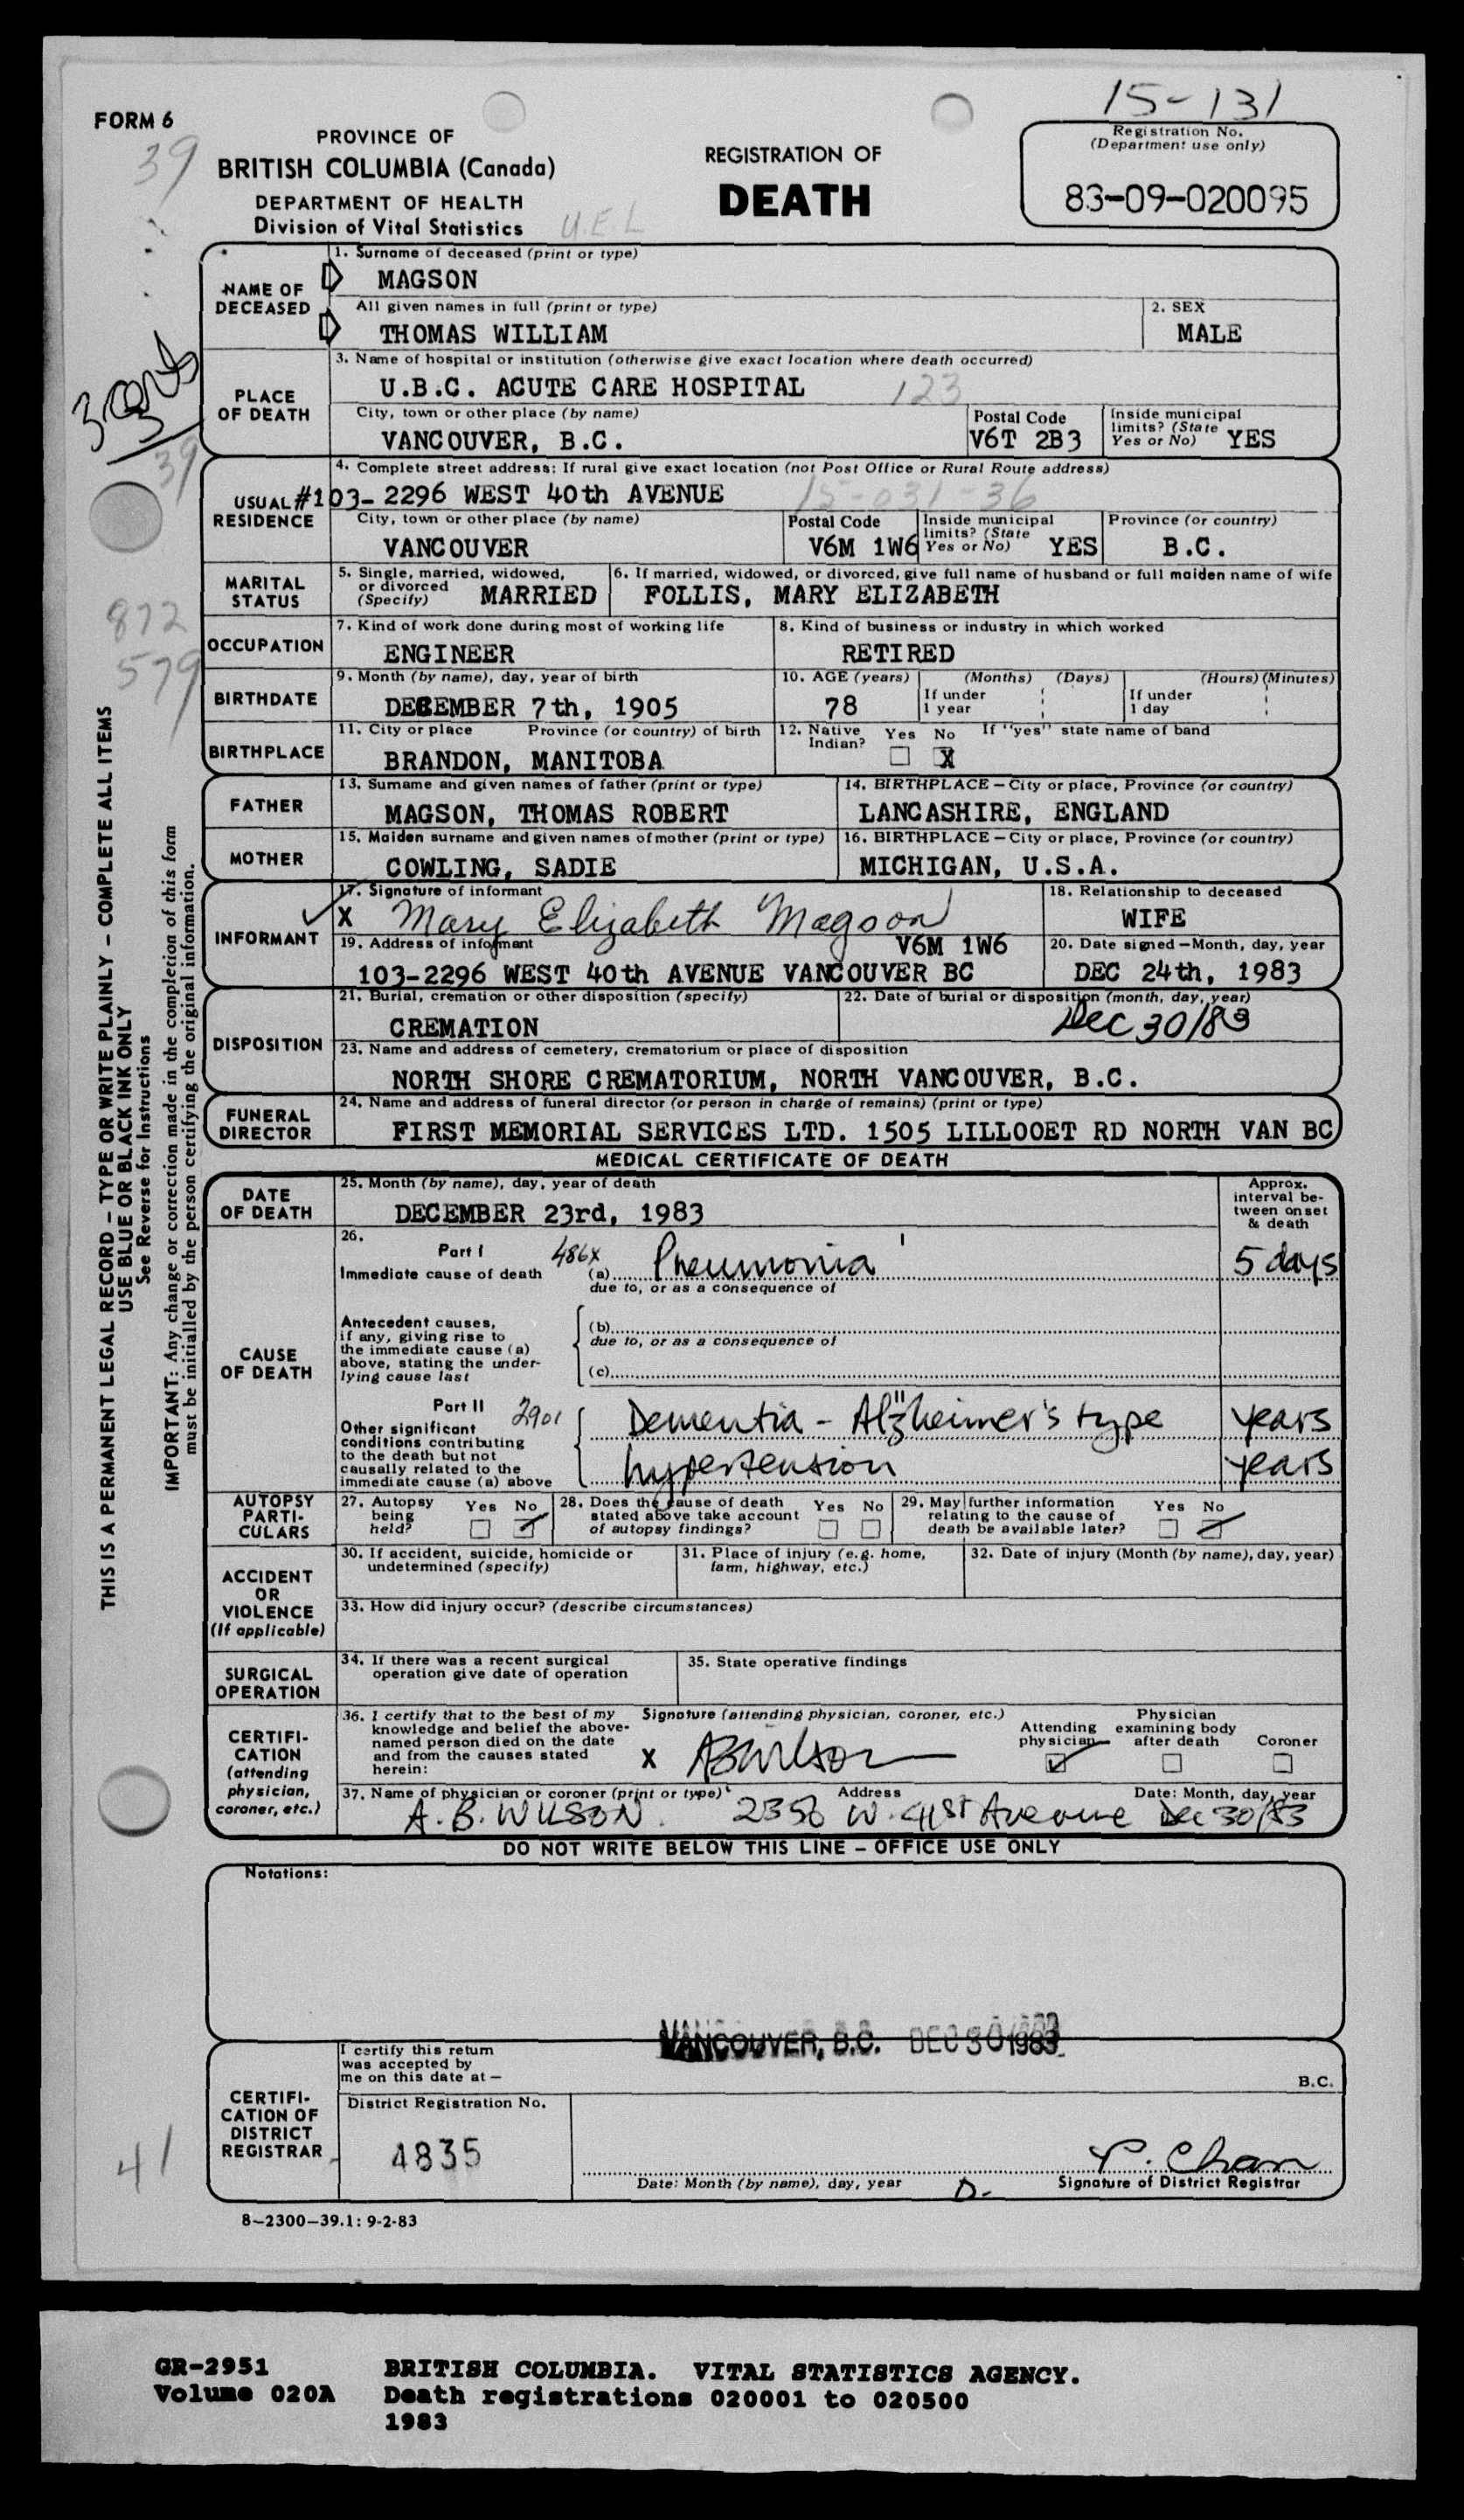 15-131
FORM 6
39
PROVINCE OF
BRITISH COLUMBIA (Canada)
DEPARTMENT OF HEALTH
Division of Vital Statistics
U.E.L
REGISTRATION OF
DEATH
Registration No.
(Department use only)
83-09-020095
NAME OF DECEASED
1. Surname of deceased (print or type)
MAGSON
All given names in full (print or type)
THOMAS WILLIAM
2. SEX
MALE
PLACE OF DEATH
3. Name of hospital or institution (otherwise give exact location where death occurred)
U.B.C. ACUTE CARE HOSPITAL 123
City, town or other place (by name)
VANCOUVER, B.C.
Postal Code
V6T 2B3
Inside municipal limits? (State Yes or No) YES
39
USUAL RESIDENCE
4. Complete street address: If rural give exact location (not Post Office or Rural Route address)
#103-2296 WEST 40th AVENUE 15-031-36
City, town or other place (by name)
VANCOUVER
Postal Code
V6M 1W6
Inside municipal limits? (State Yes or No) YES
Province (or country)
B.C.
MARITAL STATUS
5. Single, married, widowed, or divorced (Specify) MARRIED
6. If married, widowed, or divorced, give full name of husband or full maiden name of wife
FOLLIS, MARY ELIZABETH
872
579
OCCUPATION
7. Kind of work done during most of working life
ENGINEER
8. Kind of business or industry in which worked
RETIRED
BIRTHDATE
9. Month (by name), day, year of birth
DECEMBER 7th, 1905
10. AGE (years)
78
If under 1 year (Months) (Days)
If under 1 day (Hours) (Minutes)
BIRTHPLACE
11. City or place Province (or country) of birth
BRANDON, MANITOBA
12. Native Indian? Yes No X
If "yes" state name of band
FATHER
13. Surname and given names of father (print or type)
MAGSON, THOMAS ROBERT
14. BIRTHPLACE – City or place, Province (or country)
LANCASHIRE, ENGLAND
MOTHER
15. Maiden surname and given names of mother (print or type)
COWLING, SADIE
16. BIRTHPLACE – City or place, Province (or country)
MICHIGAN, U.S.A.
INFORMANT
17. Signature of informant
X Mary Elizabeth Magson
18. Relationship to deceased
WIFE
19. Address of informant V6M 1W6
103-2296 WEST 40th AVENUE VANCOUVER BC
20. Date signed – Month, day, year
DEC 24th, 1983
DISPOSITION
21. Burial, cremation or other disposition (specify)
CREMATION
22. Date of burial or disposition (month, day, year)
Dec 30/83
23. Name and address of cemetery, crematorium or place of disposition
NORTH SHORE CREMATORIUM, NORTH VANCOUVER, B.C.
FUNERAL DIRECTOR
24. Name and address of funeral director (or person in charge of remains) (print or type)
FIRST MEMORIAL SERVICES LTD. 1505 LILLOOET RD NORTH VAN BC
THIS IS A PERMANENT LEGAL RECORD – TYPE OR WRITE PLAINLY – COMPLETE ALL ITEMS
USE BLUE OR BLACK INK ONLY
See Reverse for Instructions
IMPORTANT: Any change or correction made in the completion of this form
must be initialled by the person certifying the original information.
MEDICAL CERTIFICATE OF DEATH
DATE OF DEATH
25. Month (by name), day, year of death
DECEMBER 23rd, 1983
Approx. interval between onset & death
CAUSE OF DEATH
26.
Part I 486X
Immediate cause of death (a) Pneumonia 5 days
due to, or as a consequence of
Antecedent causes, if any, giving rise to the immediate cause (a) above, stating the underlying cause last
(b)
due to, or as a consequence of
(c)
Part II 2901
Other significant conditions contributing to the death but not causally related to the immediate cause (a) above
Dementia - Alzheimer's type years
hypertension years
AUTOPSY PARTICULARS
27. Autopsy being held? Yes No
28. Does the cause of death stated above take account of autopsy findings? Yes No
29. May further information relating to the cause of death be available later? Yes No
ACCIDENT OR VIOLENCE (If applicable)
30. If accident, suicide, homicide or undetermined (specify)
31. Place of injury (e.g. home, farm, highway, etc.)
32. Date of injury (Month (by name), day, year)
33. How did injury occur? (describe circumstances)
SURGICAL OPERATION
34. If there was a recent surgical operation give date of operation
35. State operative findings
CERTIFICATION (attending physician, coroner, etc.)
36. I certify that to the best of my knowledge and belief the above-named person died on the date and from the causes stated herein:
Signature (attending physician, coroner, etc.)
X ABWilson
Attending physician
Physician examining body after death
Coroner
37. Name of physician or coroner (print or type) Address Date: Month, day, year
A. B. WILSON. 2356 W. 41st Avenue Dec 30/83
DO NOT WRITE BELOW THIS LINE – OFFICE USE ONLY
Notations:
VANCOUVER, B.C. DEC 30 1983
CERTIFICATION OF DISTRICT REGISTRAR
I certify this return was accepted by me on this date at –
B.C.
District Registration No.
4835
P. Chan
Date: Month (by name), day, year
D.
Signature of District Registrar
41
8-2300-39.1: 9-2-83
GR-2951
Volume 020A
BRITISH COLUMBIA. VITAL STATISTICS AGENCY.
Death registrations 020001 to 020500
1983